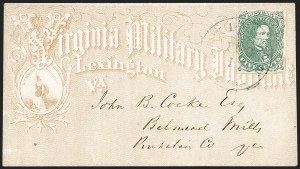 Virginia Military
Lexington
VA
John B. Cocke Esq
Belmead Mills
Powhatan Co Va